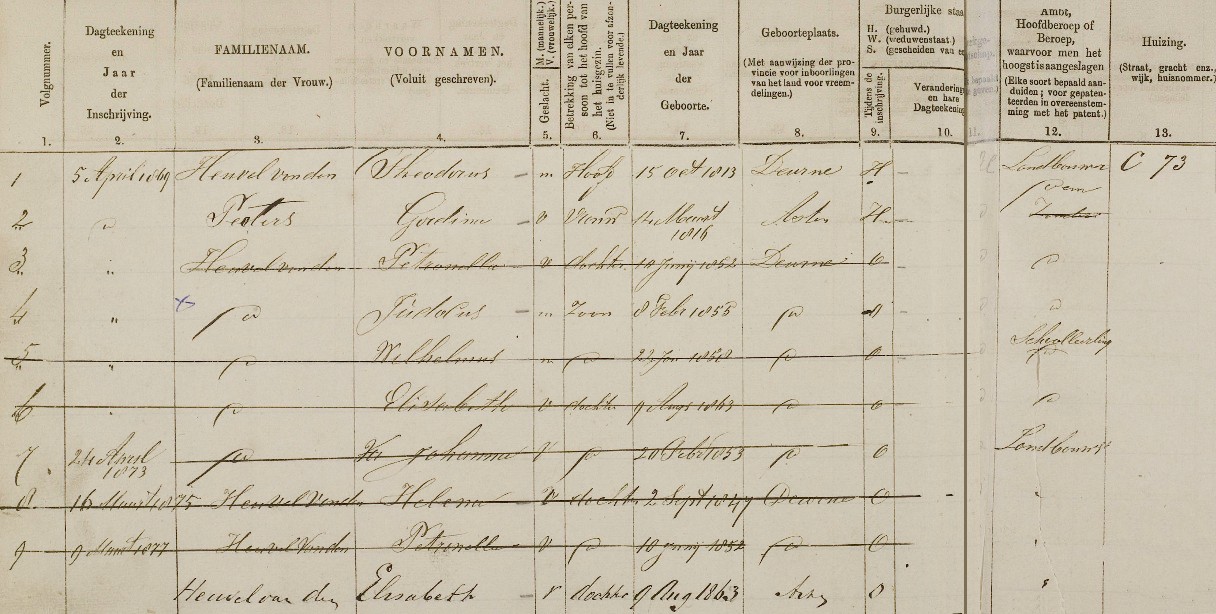 Volgnummer.
1.
Dagteekening
en
Jaar
der
Inschrijving.
2.
FAMILIENAAM.
(Familienaam der Vrouw.)
3.
VOORNAMEN.
(Voluit geschreven).
4.
Geslacht. M. (mannelijk.)
V. (vrouwelijk.)
5.
Betrekking van elken per-
soon tot het hoofd van
het huisgezin.
(Niet in te vullen voor afzon-
derlijk levende.)
6.
Dagteekening
en Jaar
der
Geboorte.
7.
Geboorteplaats.
(Met aanwijzing der pro-
vincie voor inboorlingen
van het land voor vreem-
delingen.)
8.
Burgerlijke staa
H. (gehuwd.)
W. (weduwenstaat.)
S. (gescheiden van
Tijdens de
inschrijving.
9.
Verandering
en hare
Dagteekening
10.
11.
Ambt,
Hoofdberoep of
Beroep,
waarvoor men het
hoogst is aangeslagen
(Elke soort bepaald aan-
duiden; voor gepaten-
teerden in overeenstem-
ming met het patent.)
12.
Huizing.
(Straat, gracht enz.,
wijk, huisnommer.)
13.
1 5 April 1869 Heuvel vanden Theodorus m Hoofd 15 Oct 1813 Deurne H Landbouwer C 73
2 Peeters Godina v Vrouw 14 Maart 1816 Asten H
3 " Heuvel vanden Petronella v dochter 10 Junij 1852 Deurne O
4 " Judocus m Zoon 8 Febr 1855
5 " Wilhelmus m O Schoolleerling
6 Elisabeth v dochter 9 Augs 1863 O
7 24 April 1873 Johanna V 20 Febr 1853 O Landbouwst
8 16 Maart 1875 Heuvel Vanden Helena V dochter 2 Sept 1847 Deurne O
9 9 Maart 1877 Heuvel Vanden Petronella v 10 Junij 1852 O
Heuvel van den Elisabeth v dochter 9 Aug 1863 O